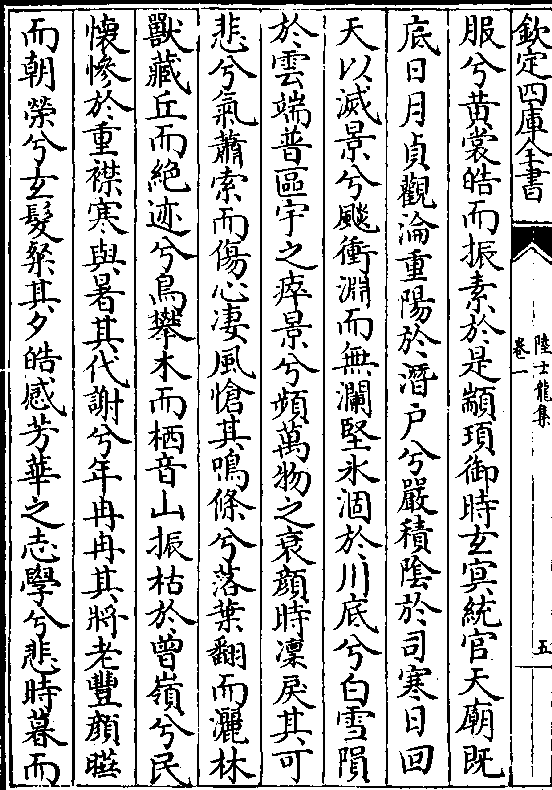 欽定四庫全書
陸士龍集
卷一
五
服兮黄裳皓而振素於是顓頊御時玄冥統官天廟既
底日月貞觀淪重陽於潛户兮嚴積陰於司寒日回
天以滅景兮飈衝淵而無瀾堅氷涸於川底兮白雪隕
於雲端普區宇之瘁景兮頻萬物之衰顔時凜戾其可
悲兮氣蕭索而傷心凄風愴其鳴條兮落葉翻而灑林
獸藏丘而絶迹兮鳥攀木而栖音山振枯於曾嶺兮民
懷慘於重襟寒與暑其代謝兮年冉冉其將老豐顔曄
而朝榮兮玄髮粲其夕皓感芳華之志學兮悲時暮而